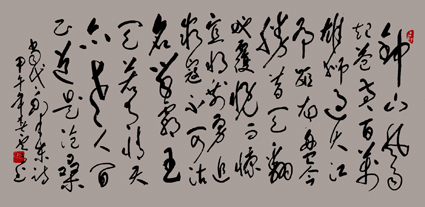 鐘山风雨
起苍黄百万
雄师过大江
虎踞龙盘今
胜昔天翻
地覆慨而慷
宜将剩勇追
穷寇不可沽
名学霸王
天若有情天
亦老人间
正道是沧桑
甲午年